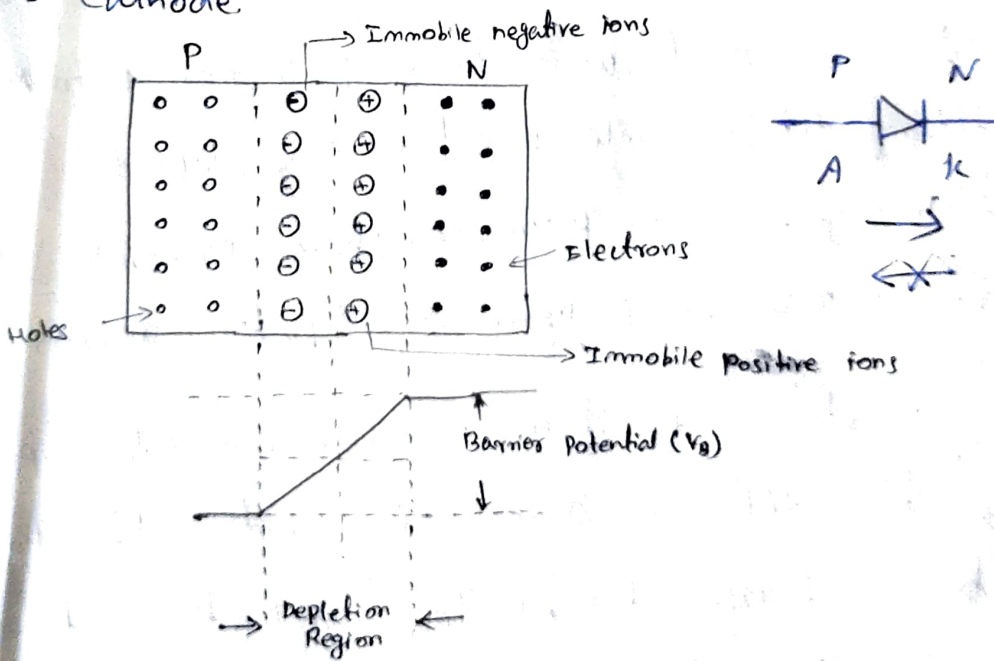 Cathode
Immobile negative ions
P
N
P N
A K
Electrons
Holes
Immobile positive ions
Barrier Potential (VB)
Depletion
Region